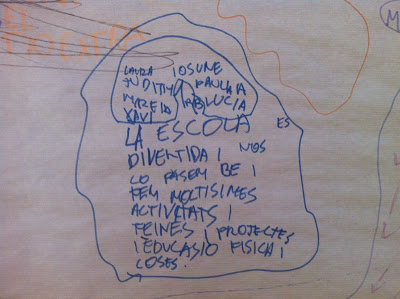 LAURA IOSUNE
JUDITH PAULA
MIREIA LUCIA
XAVI
LA ESCOLA ES
DIVERTIDA I NOS
LO PASEM BE I
FEM MOLTISIMES
ACTIVITATS I
FEINES I PROJECTES
I EDUCASIO FISICA I
COSES.
M